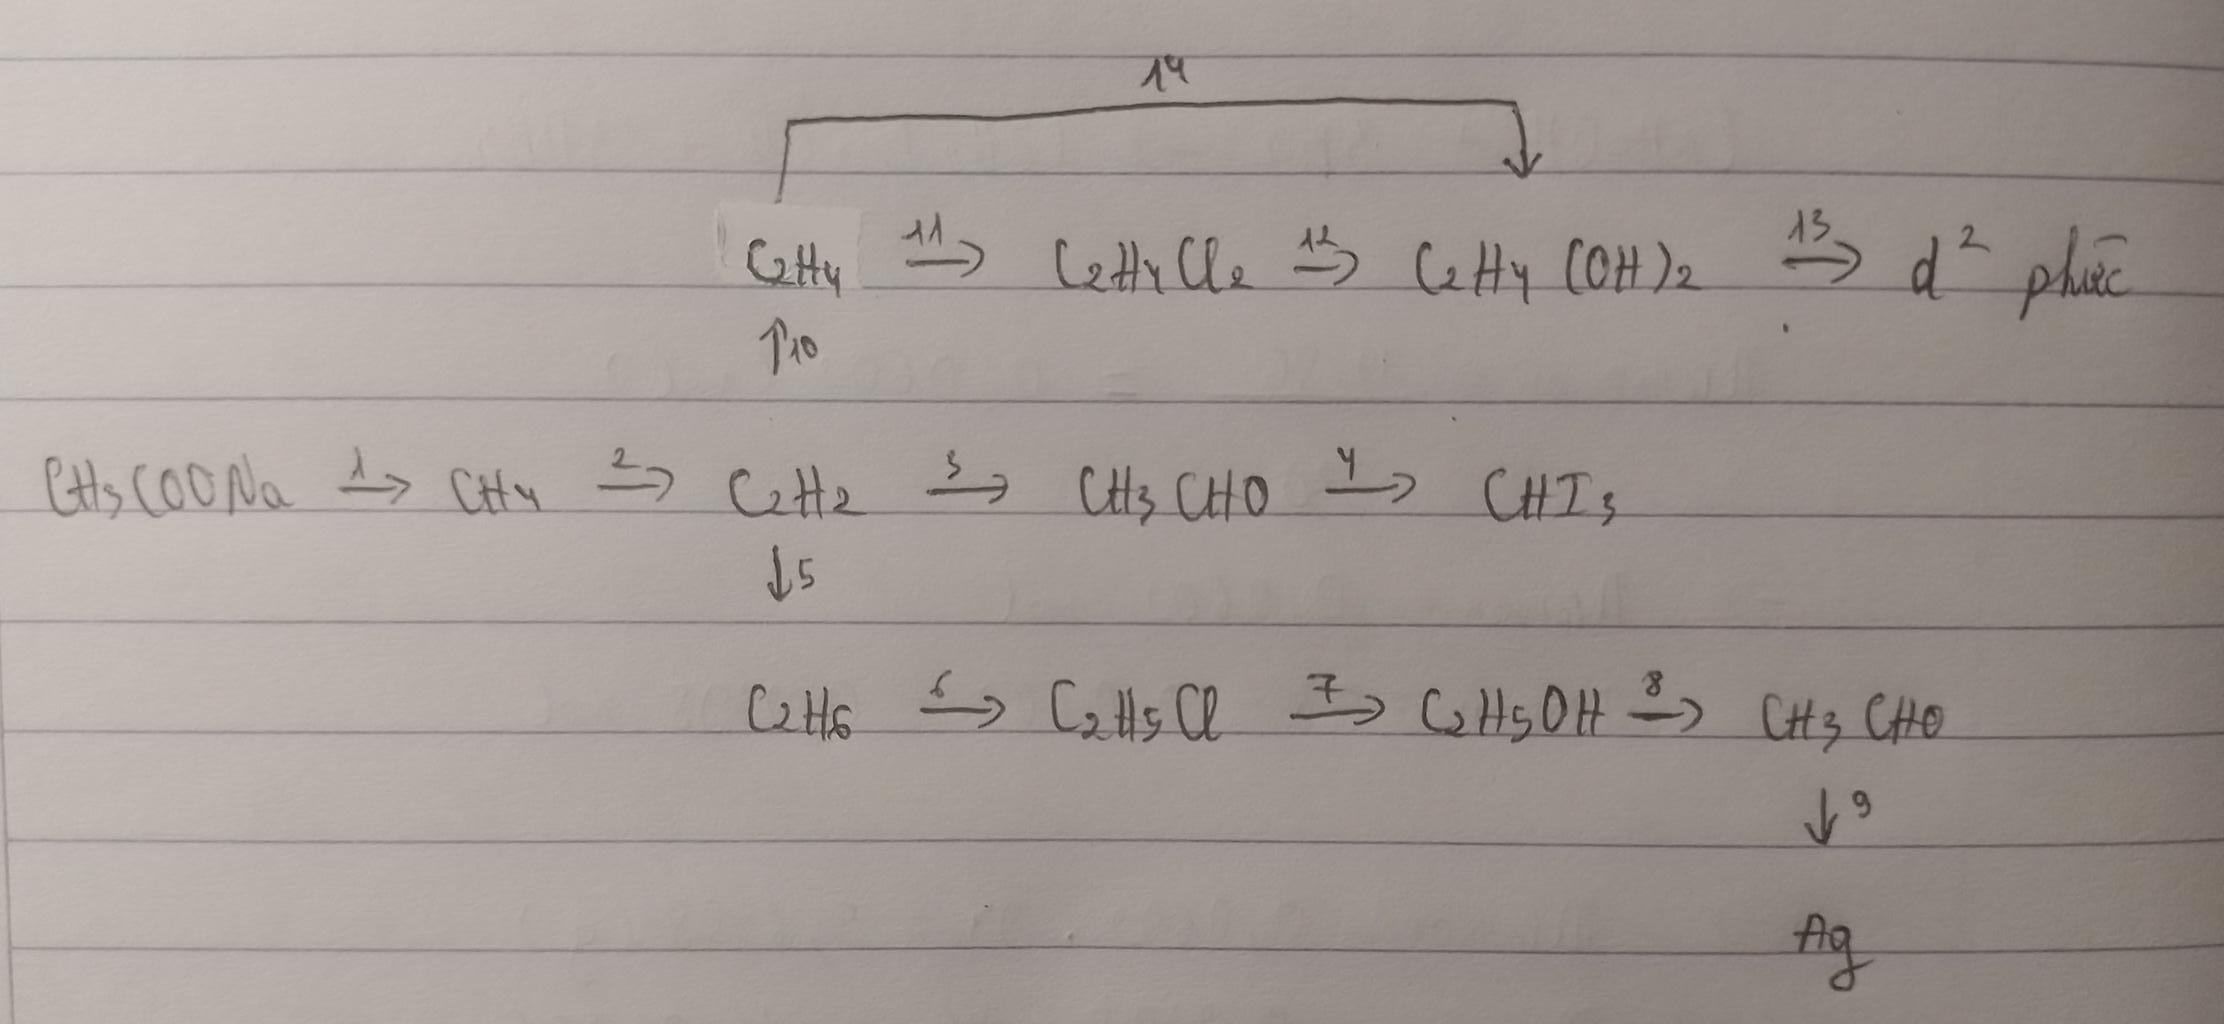 14
C2H4 11→ C2H4Cl2 12→ C2H4(OH)2 13→ d² phức
↑10
CH3COONa 1→ CH4 2→ C2H2 3→ CH3CHO 4→ CHI3
↓5
C2H6 6→ C2H5Cl 7→ C2H5OH 8→ CH3CHO
↓9
Ag